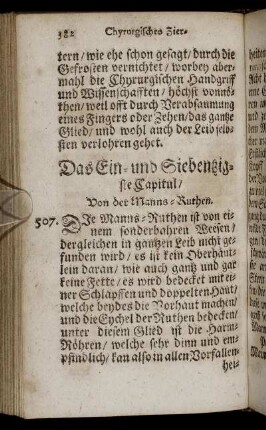 382 Chyrurgisches Zier-
tern/ wie ehe schon gesagt/ durch die
Gefrosten vernichtet/ worbey aber-
mahl die Chyrurgischen Handgriff
und Wissenschafften/ höchst vonnö-
then/ weil offt durch Verabsaumung
eines Fingers oder Zehen/ das gantze
Glied/ und wohl auch der Leib selb-
sten verlohren gehet.
Das Ein- und Siebentzig-
ste Capitul/
Von der Manns-Ruthen.
507. DIe Manns-Ruthen ist von ei-
nem sonderbahren Weesen/
dergleichen in gantzen Leib nicht ge-
funden wird/ es ist kein Oberhäut-
lein daran/ wie auch gantz und gar
keine Fette/ es wird bedeckt mit ei-
ner Schlappen und doppelten Haut/
welche beydes die Vorhaut machen/
und die Eychel der Ruthen bedecken/
unter diesem Glied ist die Harm-
Röhren/ welche sehr dinn und em-
pfindlich/ kan also in allen Vorfallen-
hei-